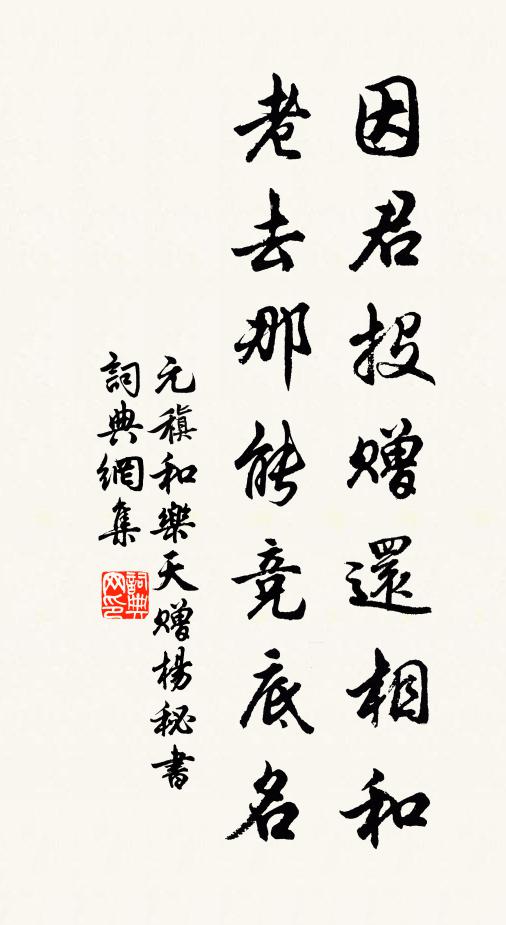 因君投贈還相和
老去那能竞底名
元稹和樂天贈楊秘書
詞典網集
詞典网印